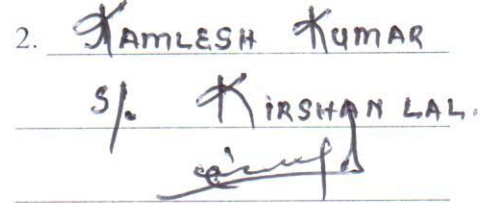 2. KAMLESH KUMAR
S/. KIRSHAN LAL.